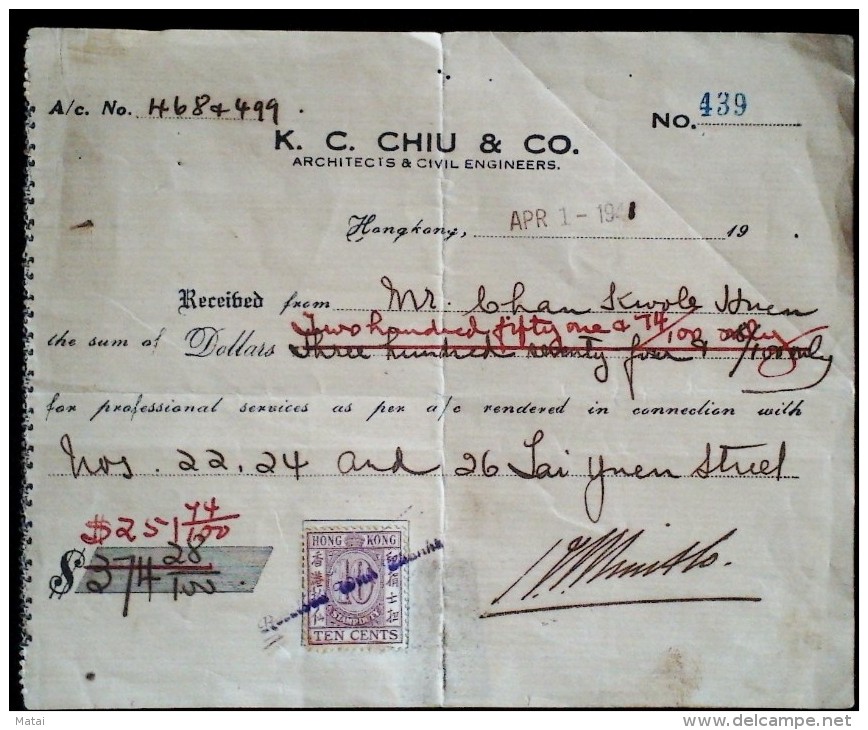 A/c. No. 468 & 499.
No. 439
K. C. CHIU & CO.
ARCHITECTS & CIVIL ENGINEERS.
Hongkong, APR 1 - 1941 19 .
Received from Mr. Chan Kwok Huen
Two hundred fifty one & 74/100 only
the sum of Dollars Three hundred seventy four & 28/100 only
for professional services as per a/c rendered in connection with
Nos. 22, 24 and 26 Tai Yuen Street
$251 74/100
$374 28/100.
HONG KONG
香港
10
STAMP DUTY
TEN CENTS
Received With Thanks
Matai
www.delcampe.net